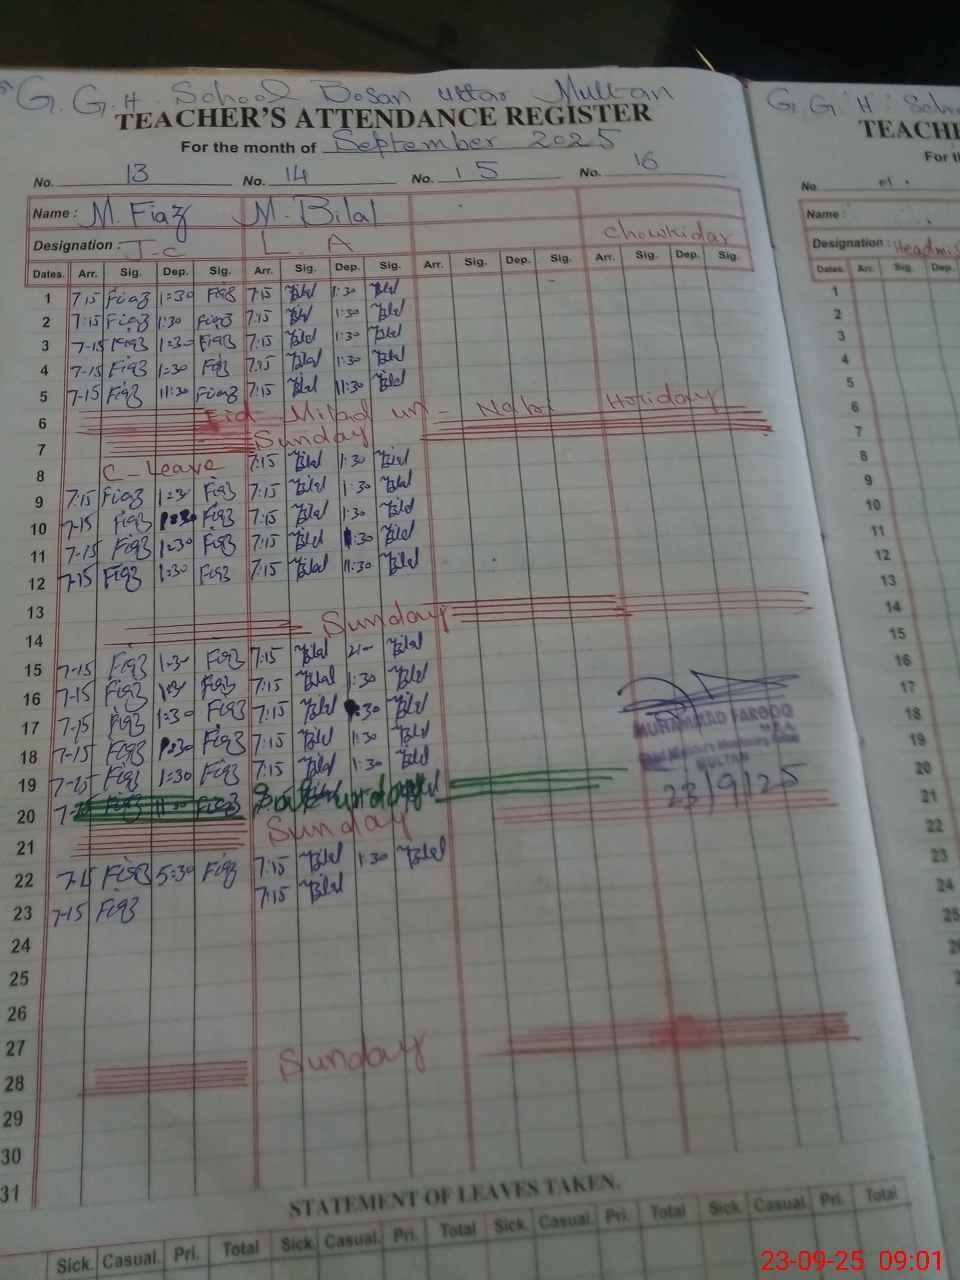 G. G. H. School Bosan Uttar Multan
TEACHER'S ATTENDANCE REGISTER
For the month of September 2025
No. 13 No. 14 No. 15 No. 16
Name : M. Fiaz M. Bilal
Designation : J.C L. A Chowkidar
Dates. Arr. Sig. Dep. Sig. Arr. Sig. Dep. Sig. Arr. Sig. Dep. Sig. Arr. Sig. Dep. Sig.
1 7:15 Fiaz 1:30 Fiaz 7:15 Bilal 1:30 Bilal
2 7:15 Fiaz 1:30 Fiaz 7:15 Bilal 1:30 Bilal
3 7-15 Fiaz 1:30 Fiaz 7:15 Bilal 1:30 Bilal
4 7-15 Fiaz 1:30 Fiaz 7:15 Bilal 1:30 Bilal
5 7-15 Fiaz 11:30 Fiaz 7:15 Bilal 11:30 Bilal
6 Eid Milad un-Nabi Holiday
7 Sunday
8 C-Leave 7:15 Bilal 1:30 Bilal
9 7:15 Fiaz 1:30 Fiaz 7:15 Bilal 1:30 Bilal
10 7-15 Fiaz 1:30 Fiaz 7:15 Bilal 1:30 Bilal
11 7-15 Fiaz 1:30 Fiaz 7:15 Bilal 1:30 Bilal
12 7-15 Fiaz 1:30 Fiaz 7:15 Bilal 11:30 Bilal
13
14 Sunday
15 7-15 Fiaz 1:30 Fiaz 7:15 Bilal Bilal
16 7-15 Fiaz 1:30 Fiaz 7:15 Bilal 1:30 Bilal
17 7-15 Fiaz 1:30 Fiaz 7:15 Bilal 1:30 Bilal
18 7-15 Fiaz 1:30 Fiaz 7:15 Bilal 1:30 Bilal
19 7-15 Fiaz 1:30 Fiaz 7:15 Bilal 1:30 Bilal
20 Fiaz 11:30 Fiaz Saturday
21 Sunday
22 7-15 Fiaz 5:30 Fiaz 7:15 Bilal 1:30 Bilal
23 7-15 Fiaz 7:15 Bilal
24
25
26
27
28 Sunday
29
30
31
MUHAMMAD FAROOQ
MEA
MULTAN
23/9/25
STATEMENT OF LEAVES TAKEN.
Sick. Casual. Pri. Total Sick. Casual. Pri. Total Sick. Casual. Pri. Total Sick. Casual. Pri. Total
G. G. H. Scho
TEACHE
For th
No.
Name :
Designation : Headmis
Dates. Arr. Sig. Dep.
1
2
3
4
5
6
7
8
9
10
11
12
13
14
15
16
17
18
19
20
21
22
23
24
25
23-09-25 09:01